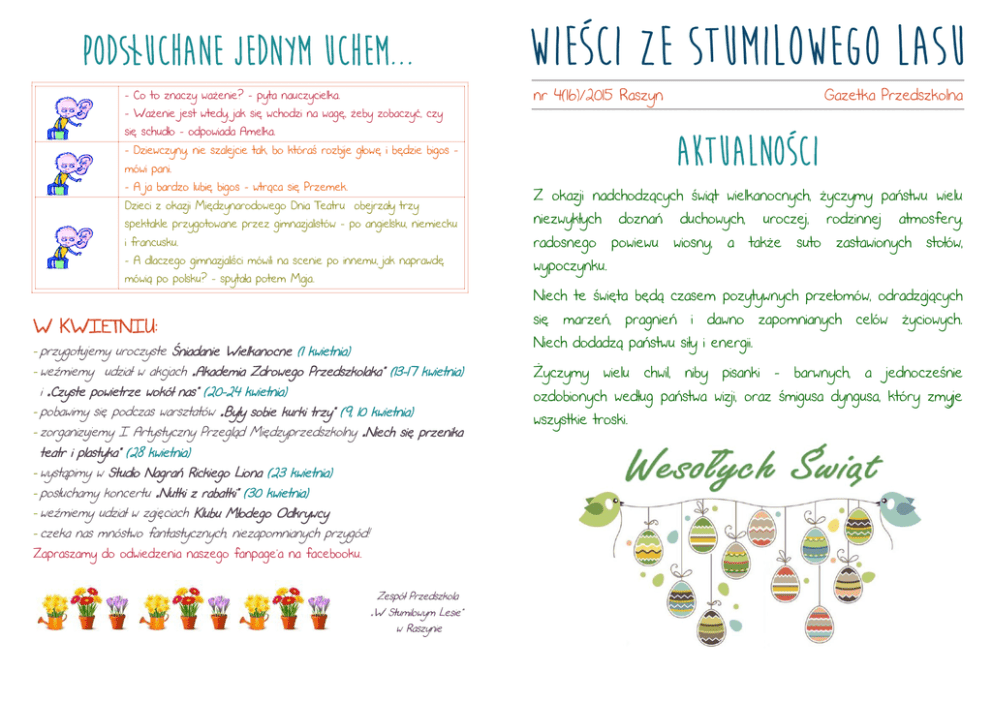 PODSŁUCHANE JEDNYM UCHEM...
- Co to znaczy ważenie? - pyta nauczycielka.
- Ważenie jest wtedy, jak się wchodzi na wagę, żeby zobaczyć, czy
się schudło - odpowiada Amelka.
- Dziewczyny, nie szalejcie tak, bo któraś rozbije głowę i będzie bigos -
mówi pani.
- A ja bardzo lubię bigos - wtrąca się Przemek.
Dzieci z okazji Międzynarodowego Dnia Teatru obejrzały trzy
spektakle przygotowane przez gimnazjalistów - po angielsku, niemiecku
i francusku.
- A dlaczego gimnazjaliści mówili na scenie po innemu, jak naprawdę,
mówią po polsku? - spytała potem Maja.
W KWIETNIU:
- przygotujemy uroczyste Śniadanie Wielkanocne (1 kwietnia)
- weźmiemy udział w akcjach „Akademia Zdrowego Przedszkolaka” (13-17 kwietnia)
i „Czyste powietrze wokół nas” (20-24 kwietnia)
- pobawimy się podczas warsztatów „Były sobie kurki trzy” (9, 10 kwietnia)
- zorganizujemy I Artystyczny Przegląd Międzyprzedszkolny „Niech się przenika
teatr i plastyka” (28 kwietnia)
- wystąpimy w Studio Nagrań Rickiego Liona (23 kwietnia)
- posłuchamy koncertu „Nutki z rabatki” (30 kwietnia)
- weźmiemy udział w zajęciach Klubu Młodego Odkrywcy
- czeka nas mnóstwo fantastycznych, niezapomnianych przygód!
Zapraszamy do odwiedzenia naszego fanpage'a na facebooku.
Zespół Przedszkola
„W Stumilowym Lesie”
w Raszynie
WIEŚCI ZE STUMILOWEGO LASU
nr 4(16)/2015 Raszyn Gazetka Przedszkolna
AKTUALNOŚCI
Z okazji nadchodzących świąt wielkanocnych, życzymy państwu wielu
niezwykłych doznań duchowych, uroczej, rodzinnej atmosfery,
radosnego powiewu wiosny, a także suto zastawionych stołów,
wypoczynku.
Niech te święta będą czasem pozytywnych przełomów, odradzających
się marzeń, pragnień i dawno zapomnianych celów życiowych.
Niech dodadzą państwu siły i energii.
Życzymy wielu chwil, niby pisanki - barwnych, a jednocześnie
ozdobionych według państwa wizji, oraz śmigusa dyngusa, który zmyje
wszystkie troski.
Wesołych Świąt